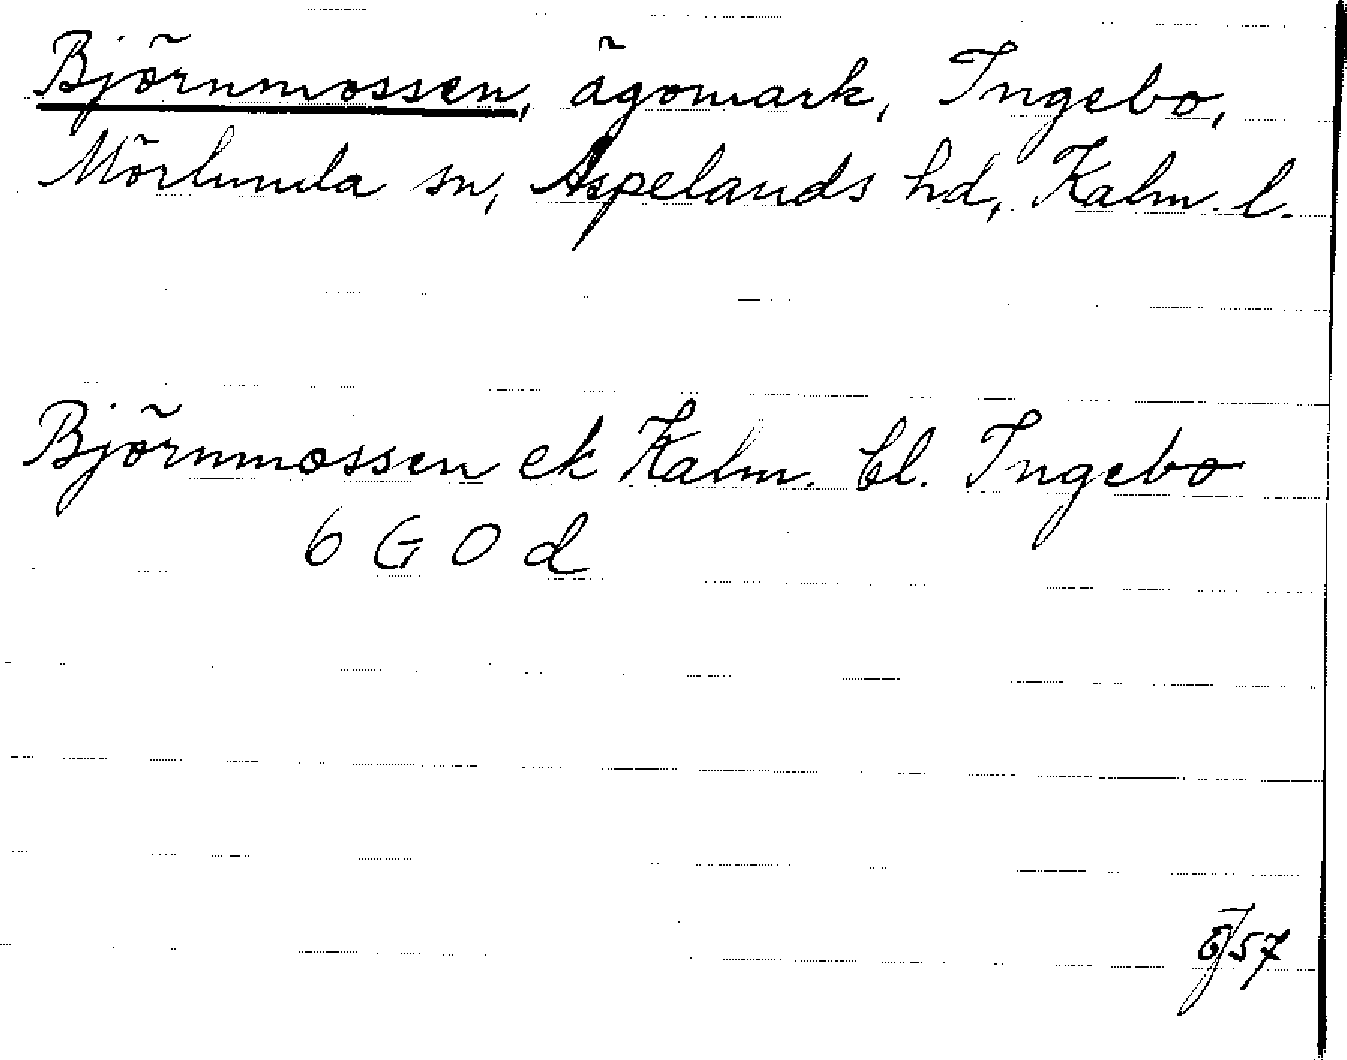 Björnmossen, ägomark, Ingebo,
Mörlunda sn, Aspelands hd, Kalm. l.
Björnmossen ek Kalm. bl. Ingebo
6 G O d
57